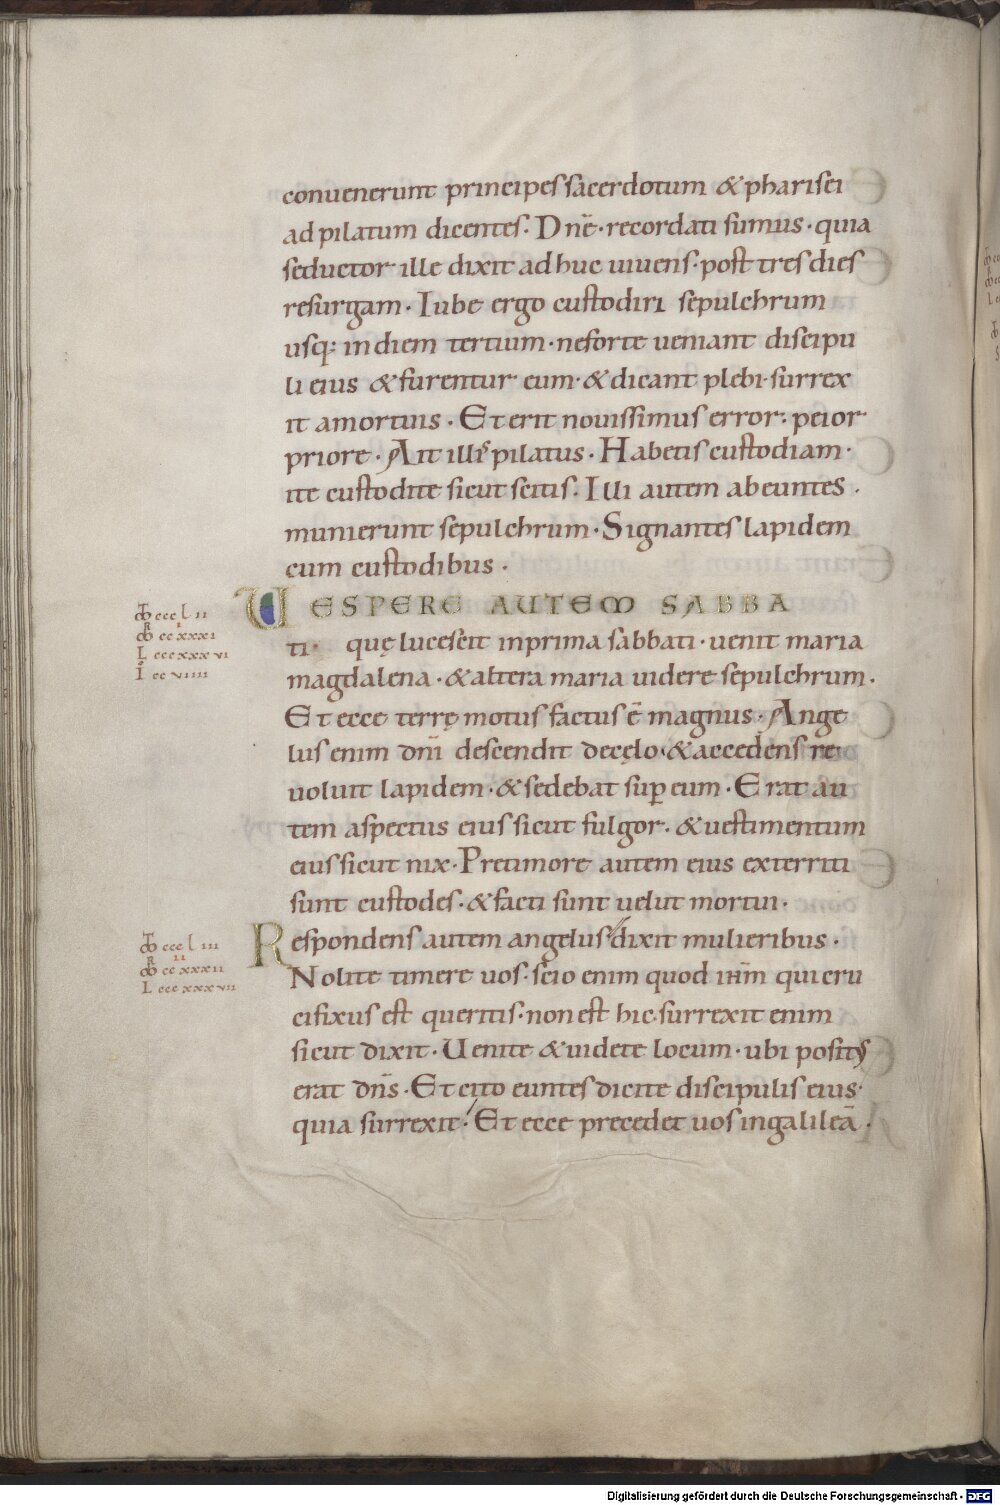 conuenerunt principes sacerdotum & pharisei
ad pilatum dicentes. Dn̄e · recordati sumus · quia
seductor ille dixit adhuc uiuens · post tres dies
resurgam · Iube ergo custodiri sepulchrum
usq: in diem tertium · ne forte ueniant discipu
li eius & furentur eum · & dicant plebi · surrex
it a mortuis · Et erit nouissimus error · peior
priore · Ait illis pilatus · Habetis custodiam ·
ite custodite sicut scitis. Illi autem abeuntes ·
munierunt sepulchrum · Signantes lapidem
cum custodibus ·
UESPERE AUTEM SABBA
ti · quę lucescit in prima sabbati · uenit maria
magdalena · & altera maria uidere sepulchrum ·
Et ecce terrę motus factus ē magnus · Ange
lus enim dn̄i descendit de cęlo · & accedens re
uoluit lapidem · & sedebat sup eum · Erat au
tem aspectus eius sicut fulgor · & uestimentum
eius sicut nix · Pre timore autem eius exterriti
sunt custodes · & facti sunt uelut mortui ·
Respondens autem angelus dixit mulieribus ·
Nolite timere uos · scio enim quod ihm̄ qui cru
cifixus est queritis · non est hic · surrexit enim
sicut dixit · Uenite & uidete locum · ubi positus
erat dn̄s · Et cito euntes dicite discipulis eius ·
quia surrexit · Et ecce precedet uos in galileā ·
ccc l ii
R i
cc xxxi
L ccc xxx vi
I cc viiii
ccc l iii
R ii
cc xxxii
L ccc xxx vii
Digitalisierung gefördert durch die Deutsche Forschungsgemeinschaft - DFG